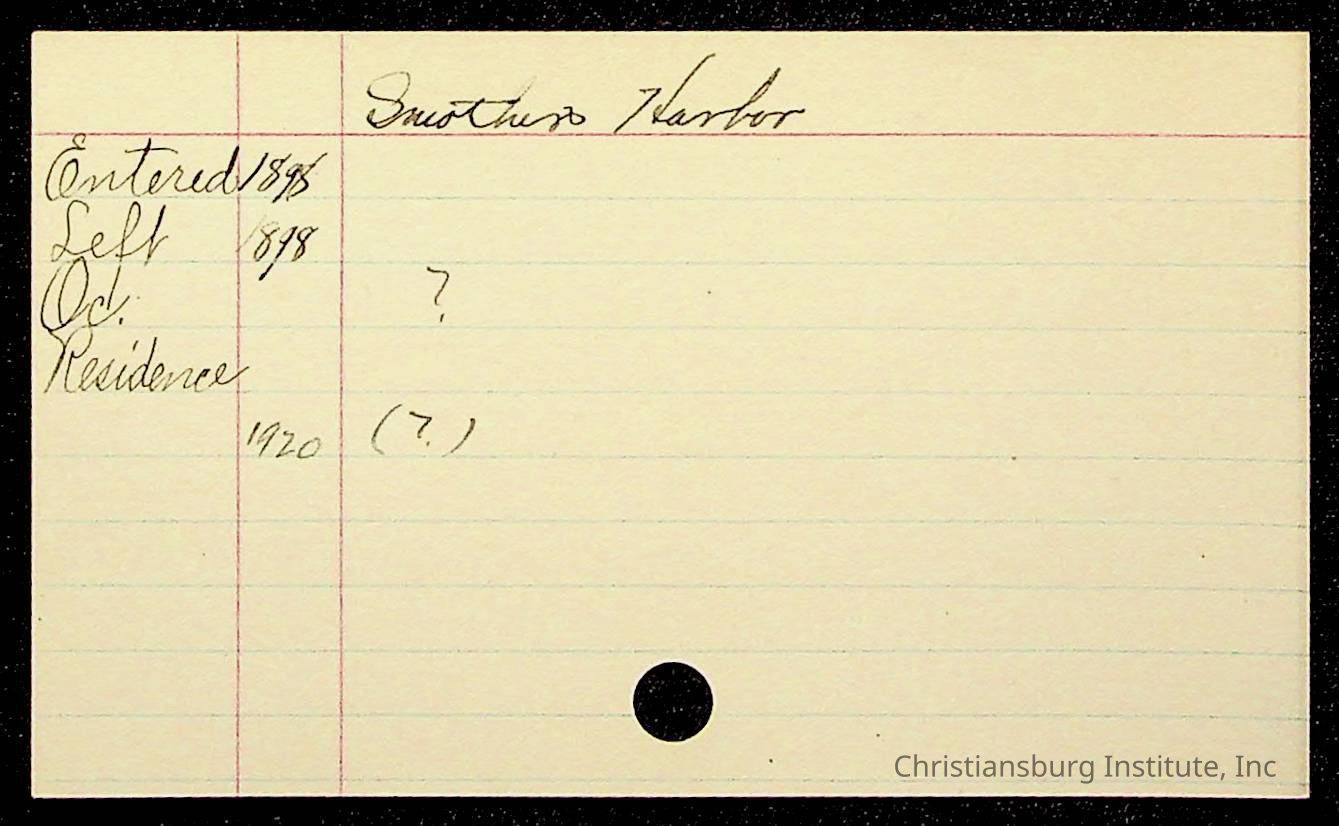 Smothers Harbor
Entered 1896
Left 1898
Oc. ?
Residence
1920 (?)
Christiansburg Institute, Inc